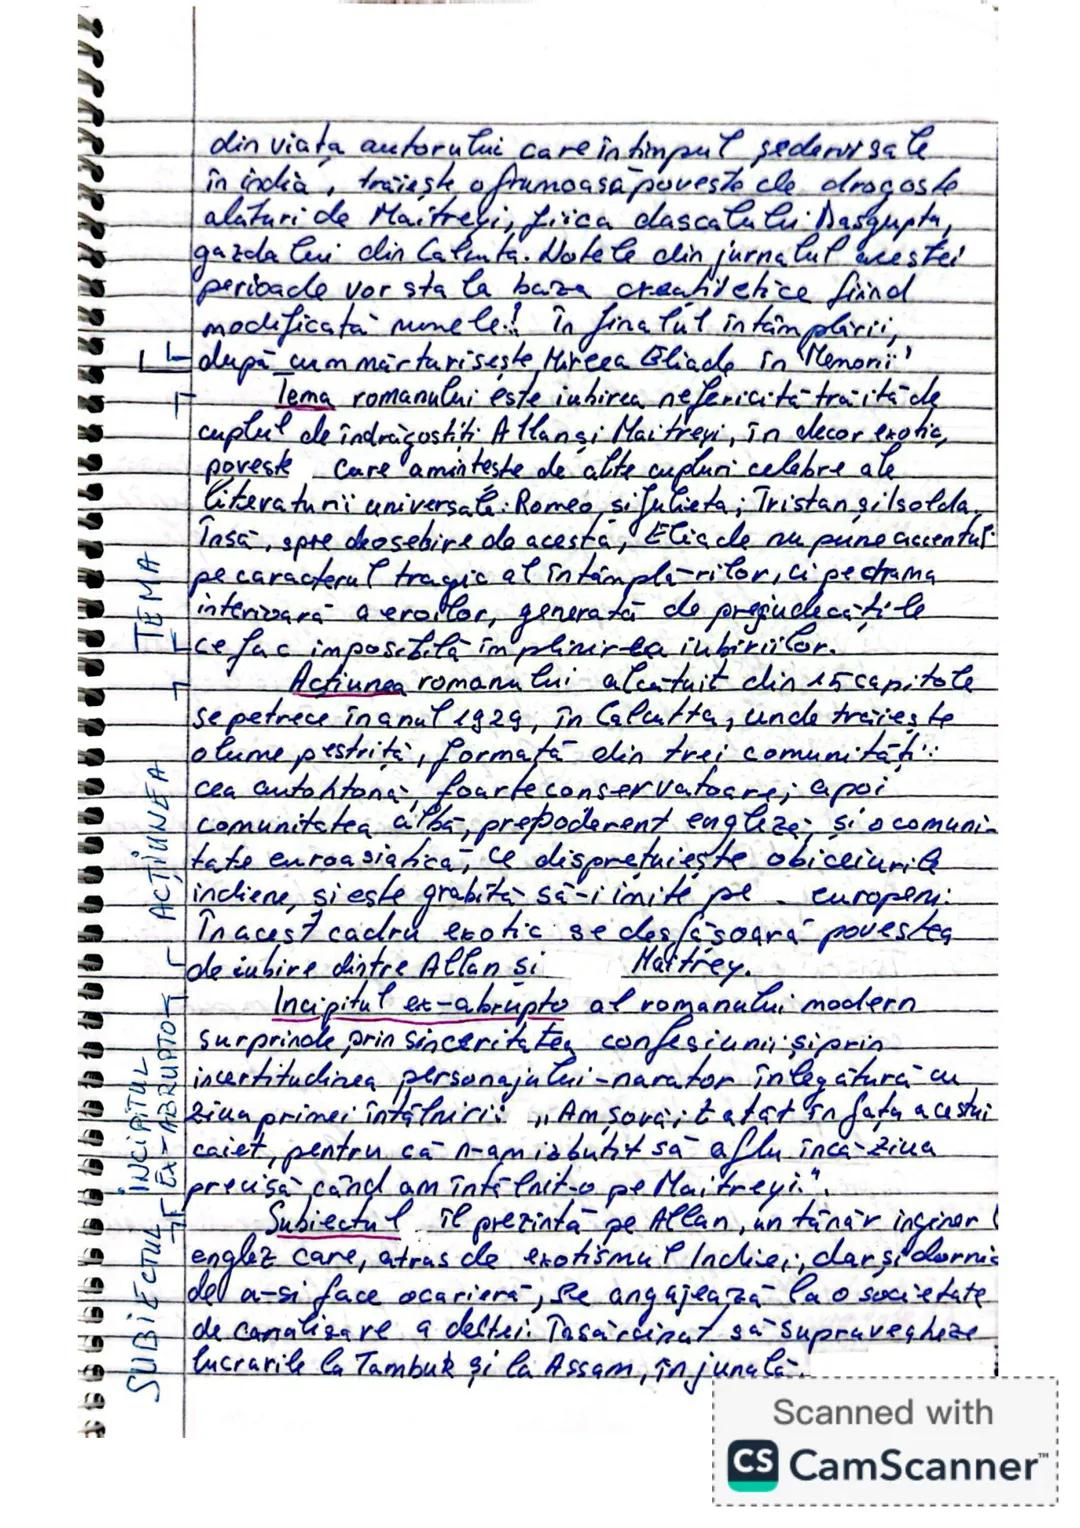 din viața autorului care în timpul șederii sale
în india, trăiește o frumoasă poveste de dragoste
alaturi de Maitreyi, fiica dascalului Dasgupta,
gazda lui din Calcuta. Notele din jurnalul acestei
perioade vor sta la baza creației fiind
modificată numele! în finalul întâmplării,
după cum mărturisește Mircea Eliade în "Memorii"
Tema romanului este iubirea nefericită trăită de
cuplul de îndrăgostiți Allan și Maitreyi, în decor exotic,
poveste care amintește de alte cupluri celebre ale
literaturii universale: Romeo și Julieta; Tristan și Isolda.
Însă, spre deosebire de acesta, Eliade nu pune accentul
pe caracterul tragic al întâmplă-rilor, ci pe drama
interioară a eroilor, generată de prejudecățile
ce fac imposibilă împlinirea iubiriilor.
Acțiunea romanului alcătuit din 15 capitole
se petrece în anul 1929, în Calcutta, unde trăiește
o lume pestriță, formată din trei comunități:
cea autohtonă, foarte conservatoare; apoi
comunitatea albă, prepoderent engleze; și o comuni-
tate euroasiatică, ce disprețuiește obiceiurile
indiene, și este grabită să-i imite pe europeni.
În acest cadru exotic se desfășoară povestea
de iubire dintre Allan și Maitrey.
Incipitul ex-abrupto al romanului modern
surprinde prin sinceritatea confesiunii și prin
incertitudinea personajului-narator în legătură cu
ziua primei întâlniri: „Am șovăit atât în fața acestui
caiet, pentru că n-am izbutit să aflu încă ziua
precisă când am întâlnit-o pe Maitreyi."
Subiectul îl prezintă pe Allan, un tânăr inginer
englez care, atras de exotismul Indiei, dar și dornic
de a-si face o carieră, se angajează la o societate
de canalizare a deltei. Însărcinat să supravegheze
lucrarile la Tambuk și la Assam, în junglă.
TEMA
ACȚIUNEA
INCIPITUL
EX-ABRUPTO
SUBIECTUL
Scanned with
CS CamScanner™